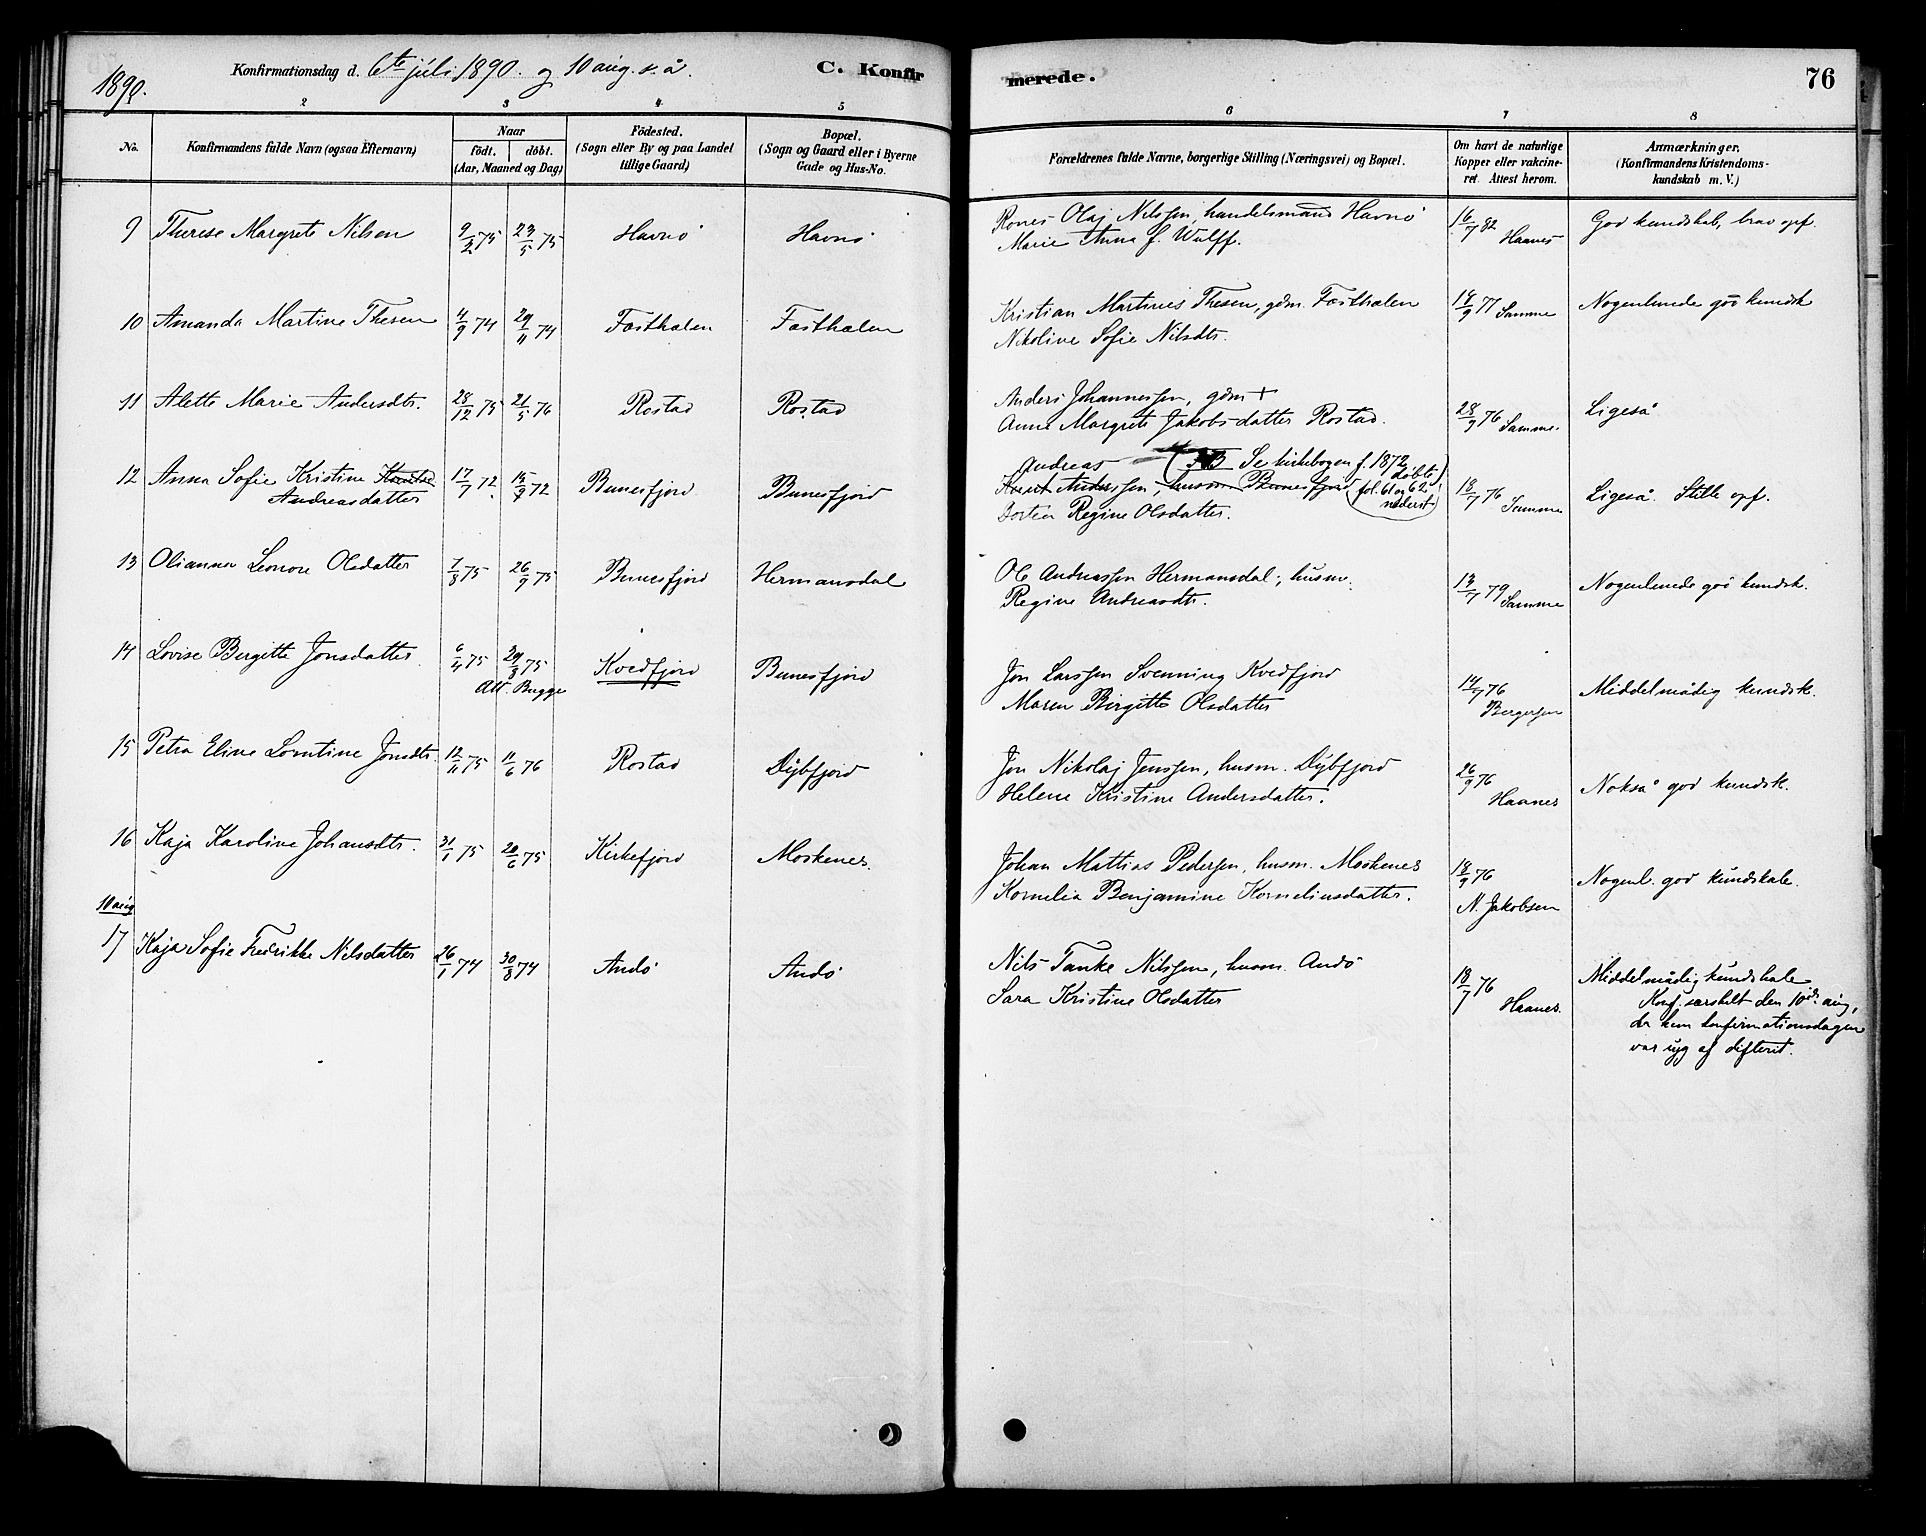 1890.
Konfirmationsdag d. 6te juli 1890. og 10 aug. s. å.
C. Konfirmerede.
76
2 3 4 5 6 7 8
No.
Konfirmandens fulde Navn (ogsaa Efternavn)
Naar
födt. döbt.
(Aar, Maaned og Dag)
Födested.
(Sogn eller By og paa Landet
tillige Gaard)
Bopæl.
(Sogn og Gaard eller i Byerne
Gade og Hus-No.
Forældrenes fulde Navne, borgerlige Stilling (Næringsvei) og Bopæl.
Om havt de naturlige
Kopper eller vakcine-
ret. Attest herom.
Anmærkninger.
(Konfirmandens Kristendoms-
kundskab m. V.)
9 Therese Margrete Nilsen 9/2 75 23/5 75 Havnö Havnö Rones Olaj Nilssen, handelsmand Havnö 16/7 82 Haanes God kundskab, brav opf.
Marie Anna f. Wulff.
10 Amanda Martine Thesen 4/9 74 29/11 74 Fæsthælen Fæsthælen Kristian Martines Thesen, gdm. Fæsthælen 14/9 77 Samme Nogenlunde god kundsk
Nikoline Sofie Nilsdtr.
11 Alette Marie Andersdtr. 28/12 75 21/5 76 Rostad Rostad Anders Johannessen, gdm + 28/9 76 Samme. Ligeså
Anne Margrete Jakobsdatter Rostad.
12 Anna Sofie Kristine 17/7 72 15/9 72 Bunesfjord Bunesfjord Andreas (NB Se kirkebogen f. 1872 döbte
Andreasdatter Andersen, husm. Bunesfjord fol. 61 og 62 nederst.) 18/7 76 Samme Ligeså. Stille opf.
Regine Olsdatter.
13 Olianna Leonore Olsdatter 7/8 75 26/9 75 Bunesfjord Hermansdal Ole Andreassen Hermansdal, husm. 13/7 79 Samme Nogenlunde god kundsk.
Regine Andreasdtr.
14 Lovise Bergitte Jonsdatter 6/4 75 29/8 75 Kvedfjord Bunesfjord Jon Larssen Svenning Kvedfjord 14/7 76 Bergersen Middelmådig kundsk.
Att. Bugge Maren Birgitte Olsdatter
15 Petra Eline Lorntine Jonsdtr. 12/11 75 11/6 76 Rostad Dybfjord Jon Nikolaj Jenssen, husm. Dybfjord 26/9 76 Haanes Nokså god kundsk.
Helene Kristine Andersdatter.
16 Kaja Karoline Johansdtr. 31/1 75 20/6 75 Kirkefjord Moskenes. Johan Mattias Pedersen, husm. Moskenes 18/9 76 N. Jakobsen Nogenl. god kundskab.
Kornelia Benjamine Korneliusdatter.
10 aug
17 Kaja Sofie Fredrikke Nilsdatter 26/1 74 30/8 74 Andö Andö Nils Tanke Nilssen, husm. Andö 18/7 76 Haanes. Middelmådig kundskab
Sara Kristine Olsdatter Konf. særskilt den 10de aug,
da hun konfirmationsdagen
var syg af difterit.